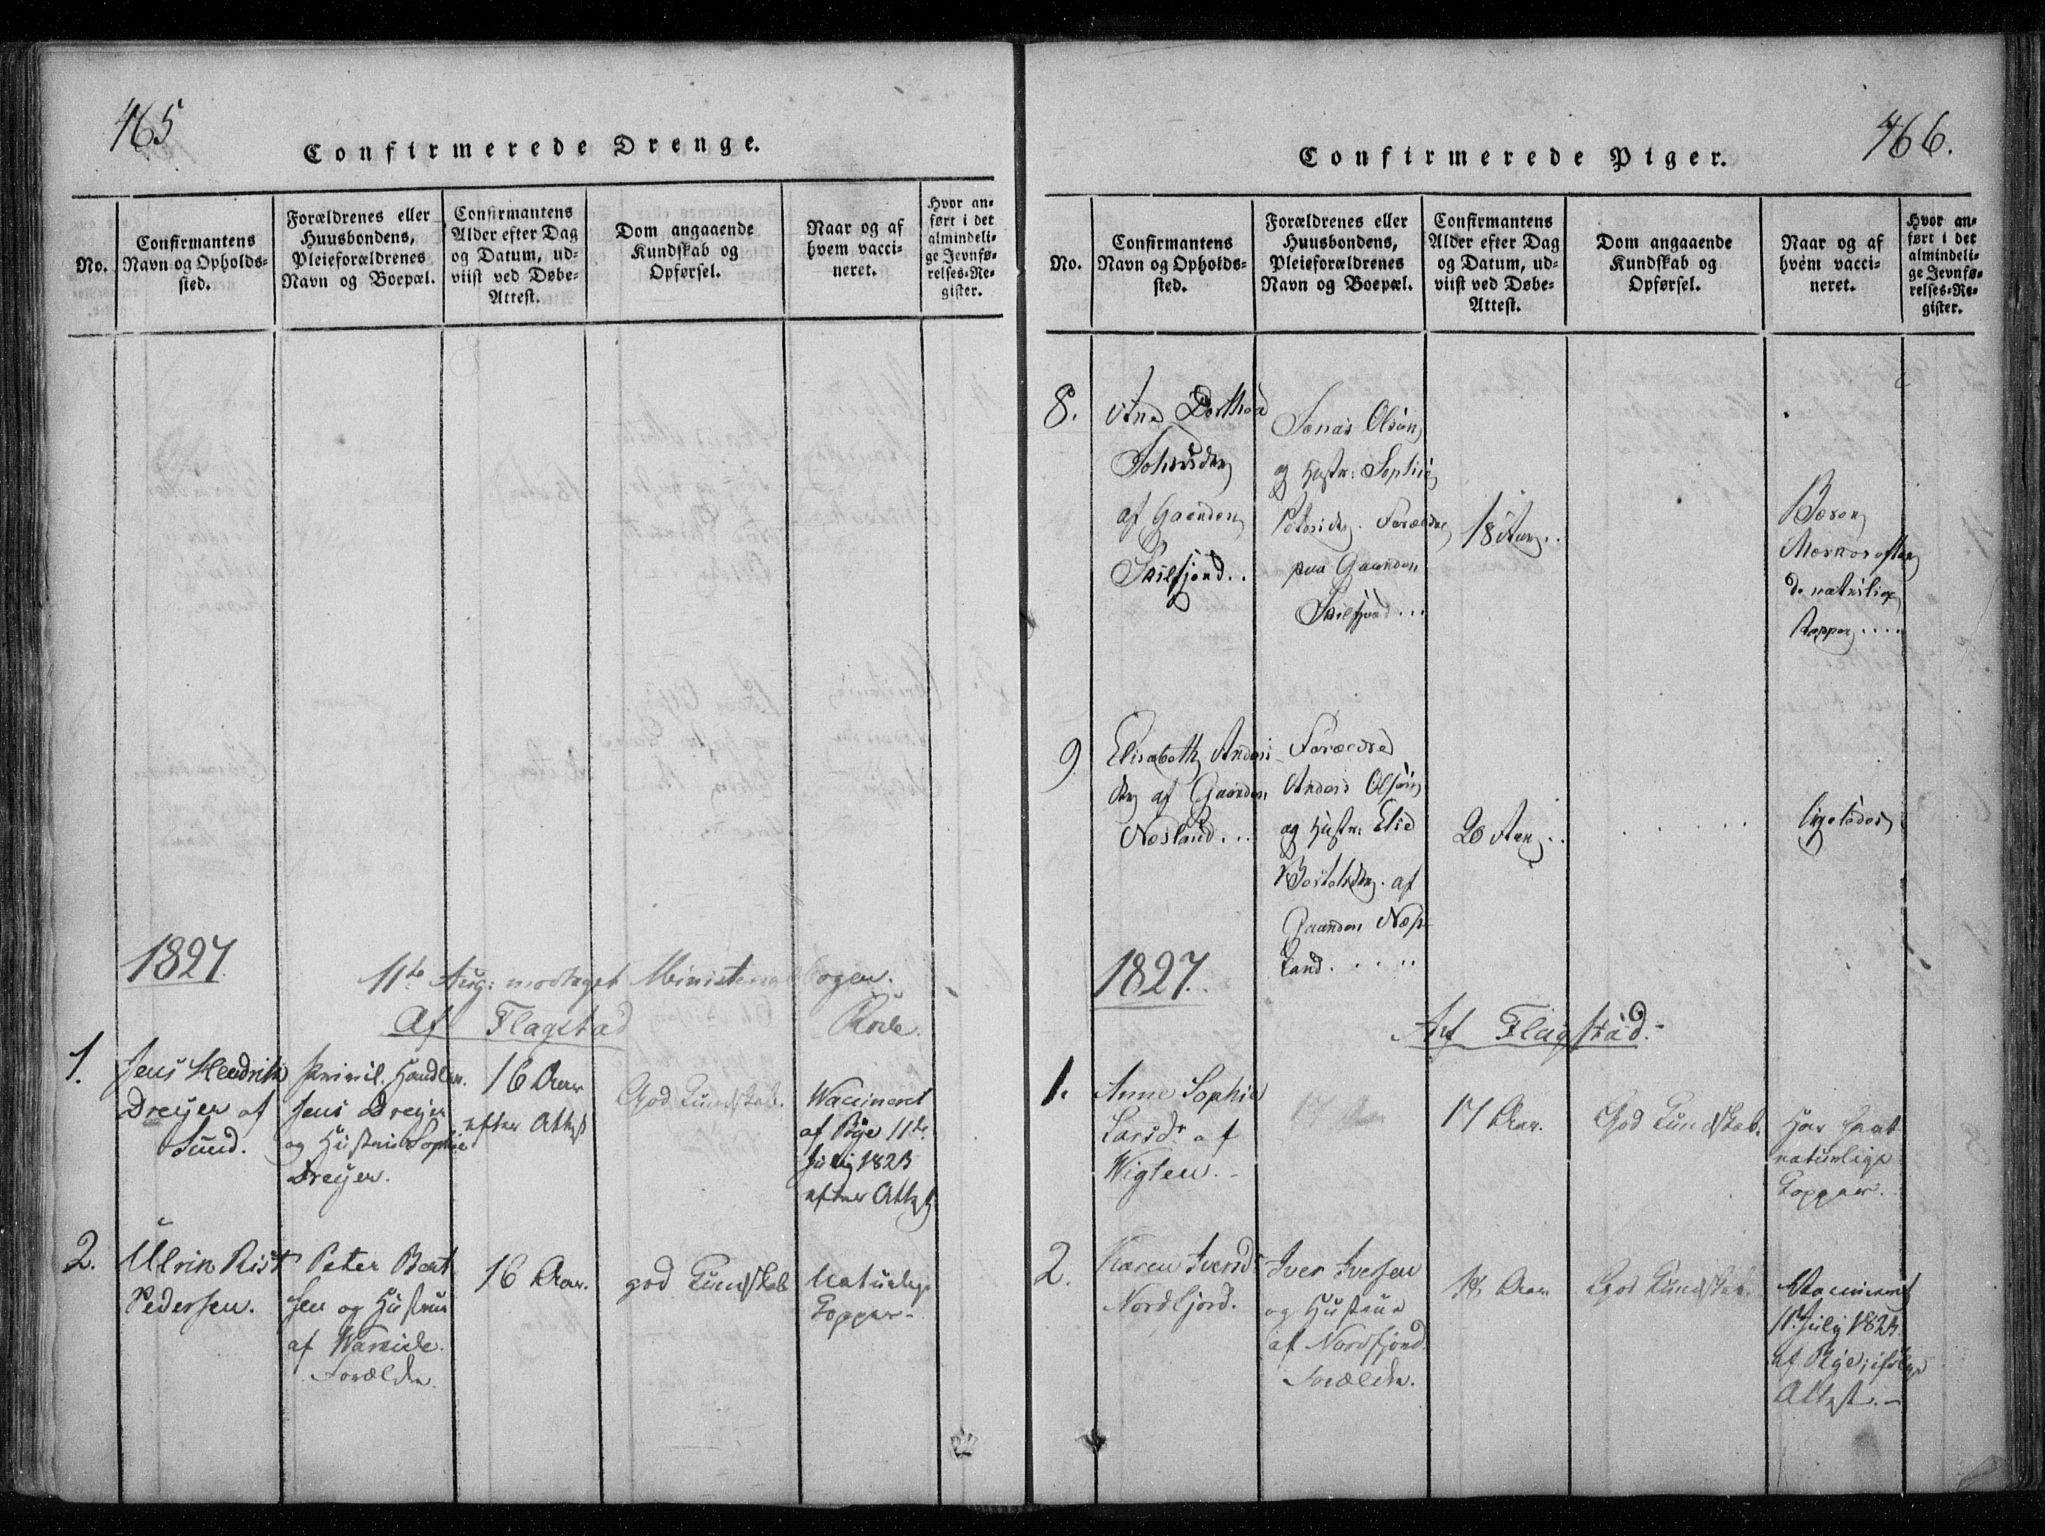 465
Confirmerede Drenge.
No.
Confirmantens
Navn og Opholds-
sted.
Forældrenes eller
Huusbondens,
Pleieforældrenes
Navn og Boepæl.
Confirmantens
Alder efter Dag
og Datum, ud-
viist ved Døbe-
Attest.
Dom angaaende
Kundskab og
Opførsel.
Naar og af
hvem vacci-
neret.
Hvor an-
ført i det
almindeli-
ge Jevnfø-
relses-Re-
gister.
1827.
11te Aug: modtaget Ministerialbogen.
Af Flagstad
1.
Jens Hendrik
Dreyer af
Sund.
Privil. Handler
Jens Dreyer
og Hustrue Sophie
Dreyer.
16 Aar
efter Attest
God Kundskab.
Waccineret
af Rye 11te
July 1825
efter Attest
2.
Ulrik Rist
Pedersen.
Peter Bert
sen og Hustrue
af
Forældre.
16 Aar.
god Kundskab
Naturlige
Kopper.
466.
Confirmerede Piger.
No.
Confirmantens
Navn og Opholds-
sted.
Forældrenes eller
Huusbondens,
Pleieforældrenes
Navn og Boepæl.
Confirmantens
Alder efter Dag
og Datum, ud-
viist ved Døbe-
Attest.
Dom angaaende
Kundskab og
Opførsel.
Naar og af
hvem vacci-
neret.
Hvor an-
ført i det
almindeli-
ge Jevnfø-
relses-Re-
gister.
8.
Ane Dorthea
af Gaarden
Skilfjord..
Jonas Olsen
og Hustr: Sophie
Forældre
paa Gaarden
Skilfjord...
18 Aar..
Bærer
Mærker efter
de naturlige
Kopper....
9
Elisabeth Anders
dtr af Gaarden
Nesland...
Forældre
Anders Olsen
og Hustr: Else
af
Gaarden Næs
land.....
20 Aar..
ligeledes
1827.
Af Flagstad.
1.
Anne Sophie
Larsdr af
Wigten.
17 Aar
17 Aar.
God Kundskab.
Har havt
naturlige
Kopper.
2.
Karen Iversd
Nordfjord.
Iver Iversen
og Hustrue
af Nordfjord
Forældre.
18 Aar
God Kundskab.
Vaccineret
11te July 1825
af Rye, ifølge
Attest.